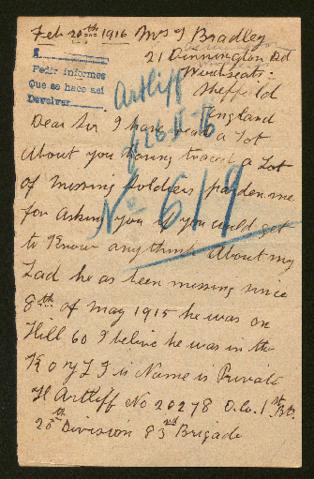 Feb 20th 1916 Mrs J Bradley
21 Dinnington Rd
Woodseats
Sheffield
England
Pedir informes
Que se hace así
Devolver
Artliff
26-II-16
No 619
Dear Sir I have read a Lot
About you having traced a Lot
of missing soldiers pardon me
for asking you if you could get
to Know anything About my
Lad he as been missing since
8th of May 1915 he was on
Hill 60 I believe he was in the
K O Y L I is Name is Private
H Artliff No 20278 D.Co. 1st Bt.
28th Division 83rd Brigade